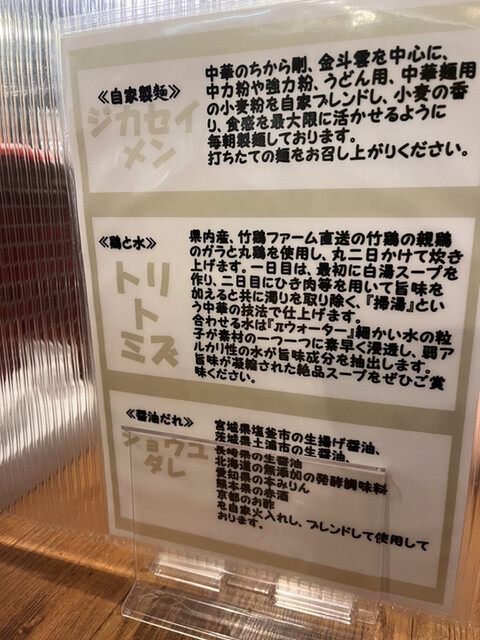 《自家製麺》
ジカセイ
メン
中華のちから剛、金斗雲を中心に、
中力粉や強力粉、うどん用、中華麺用
の小麦粉を自家ブレンドし、小麦の香
り、食感を最大限に活かせるように
毎朝製麺しております。
打ちたての麺をお召し上がりください。
《鶏と水》
トリ
ト
ミズ
県内産、竹鶏ファーム直送の竹鶏の親鶏
のガラと丸鶏を使用し、丸二日かけて炊き
上げます。一日目は、最初に白湯スープを
作り、二日目にひき肉等を用いて旨味を
加えると共に濁りを取り除く、『掃湯』とい
う中華の技法で仕上げます。
合わせる水は『πウォーター』細かい水の粒
子が素材の一つ一つに素早く浸透し、弱ア
ルカリ性の水が旨味成分を抽出します。
旨味が凝縮された絶品スープをぜひご賞
味ください。
《醤油だれ》
ショウユ
ダレ
宮城県塩釜市の生揚げ醤油、
茨城県土浦市の生醤油、
長崎県の生醤油
北海道の無添加の発酵調味料
愛知県の本みりん
熊本県の赤酒
京都のお酢
を自家火入れし、ブレンドして使用して
おります。